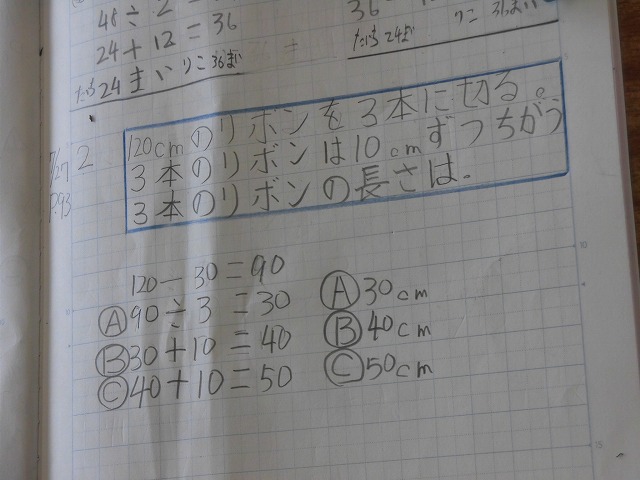 48÷2
24+12=36
たいち24まい りこ36まい
36
たいち24まい りこ36まい
7/27
P.93
2
120cmのリボンを3本に切る。
3本のリボンは10cmずつちがう
3本のリボンの長さは。
120-30=90
Ⓐ90÷3=30
Ⓑ30+10=40
Ⓒ40+10=50
Ⓐ30cm
Ⓑ40cm
Ⓒ50cm